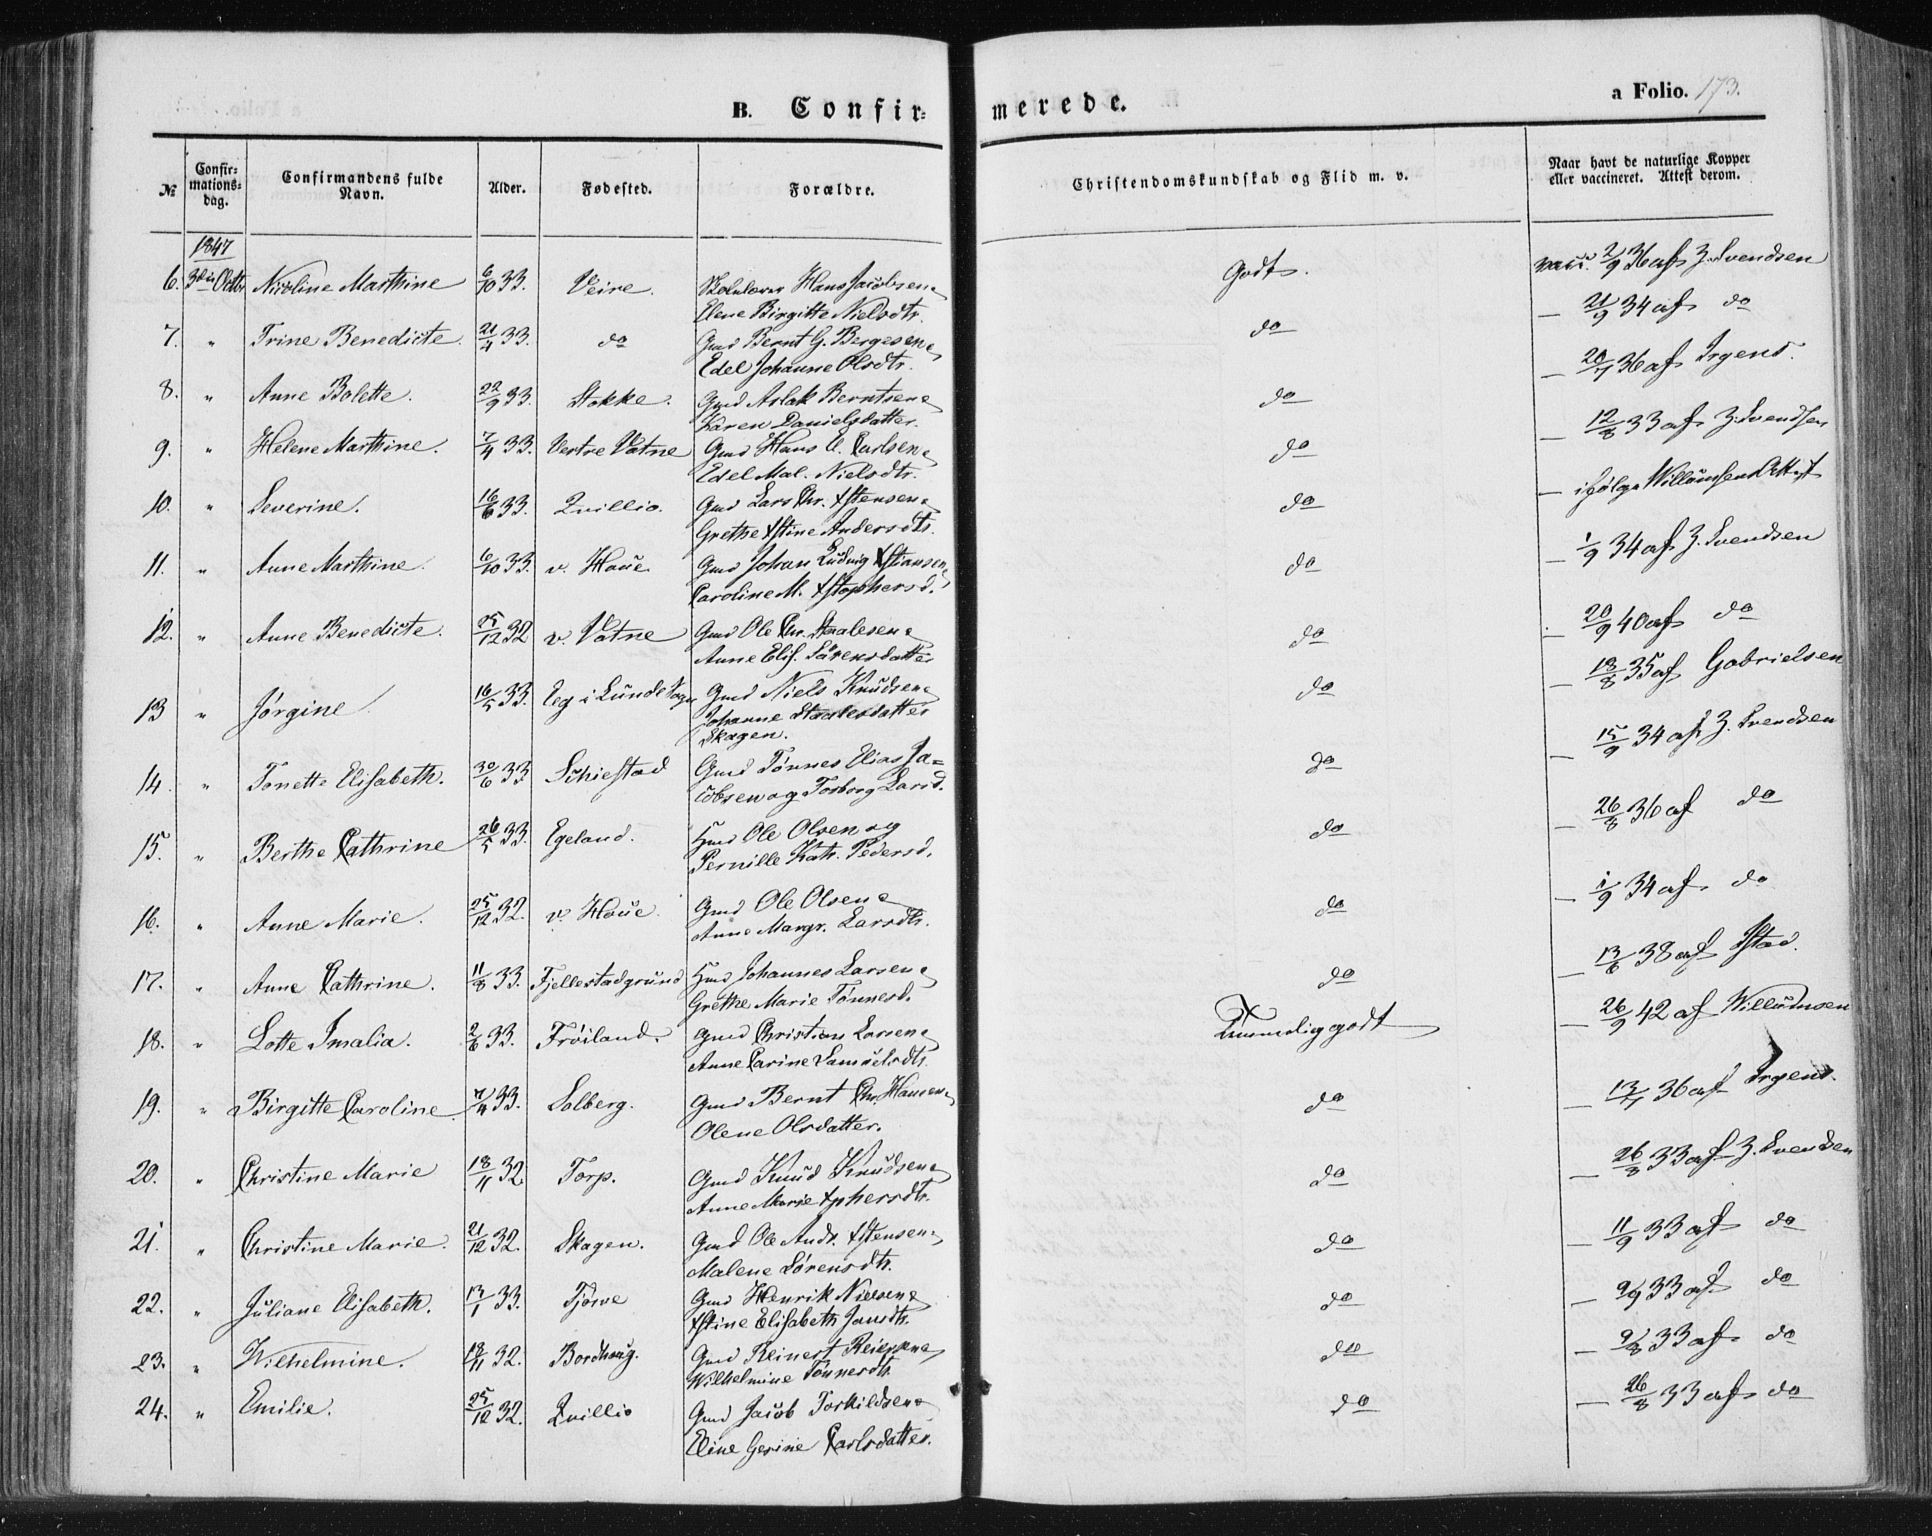 B. Confir- merede.
a Folio. 173.
№ Confir-mations-dag. Confirmandens fulde Navn. Alder. Fødested. Forældre. Christendomskundskab og Flid m. v. Naar havt de naturlige Kopper eller vaccineret. Attest derom.
1847
6. 3die Octbr Nicoline Marthine 6/10 33. Veire. Hans Jacobsen, Godt. vacc. 2/9 36 af Z. Svendsen
Elene Birgitte Nielsdtr.
7. " Trine Benedicte. 21/4 33. do Gmd Bernt G. Bergesen, do — 21/9 34 af do
Edel Johanne Olsdtr.
8. " Anne Bolette. 22/9 33. Stokke. Gmd Aslak Berntsen, do — 20/7 36 af Irgens.
Karen Danielsdatter.
9. " Helene Marthine. 7/4 33. Vestre Vatne Gmd Hans E. Carlsen, do — 12/8 33 af Z. Svendsen
Edel Mal. Nielsdtr.
10. " Severine. 16/6 33. Qvillio. Gmd Lars Chr. Xstensen, do — ifølge Willumsens Attest
Grethe Xstine Andersdtr.
11. " Anne Marthine. 6/10 33. v. Haue. Gmd Johan Ludvig Xstiansen, do — 1/9 34 af Z. Svendsen
Caroline M. Xstophersd.
12. " Anne Benedicte. 25/12 32 v. Vatne Gmd Ole Chr. Staalesen, do — 20/9 40 af do
Anne Elis. Sørensdatter
13 " Jørgine 16/5 33. Eeg i Lunde Sogn Gmd Niels Knudsen, do — 18/8 35 af Gabrielsen
Johanne Staalesdatter
Skagen.
14. " Tonette Elisabeth. 30/6 33 Schiestad Gmd Tönnes Elias Ja= do — 15/9 34 af Z. Svendsen
cobsen og Torborg Larsd.
15. " Berthe Cathrine 26/5 33. Egeland. Hmd Ole Olsen og do — 26/8 36 af do
Pernille Katr. Pedersd.
16. " Anne Marie. 25/12 32. v. Haue. Gmd Ole Olsen, do — 1/9 34 af do
Anne Margr. Larsdtr.
17. " Anne Cathrine. 11/8 33. Fjellestadgrund Hmd Johannes Larsen, do — 13/6 38 af Ystad.
Grethe Marie Tønnesd.
18. " Lotte Imalia. 2/6 33. Frøiland. Gmd Christian Larsen, Temmelig godt — 26/9 42 af Willumsen
Anne Carine Samuelsdtr.
19. " Birgitte Caroline 7/4 33. Solberg. Gmd Bernt Chr. Hansen, do — 13/7 36 af Irgens.
Olene Olsdatter.
20. " Christine Marie 18/11 32. Torp. Gmd Knud Knudsen, do — 26/8 33 af Z. Svendsen
Anne Marie Xphersdtr.
21. " Christine Marie. 21/12 32. Skagen. Gmd Ole Andr. Xstensen, do — 11/9 33 af do
Malene Sørensdtr.
22. " Juliane Elisabeth. 13/1 33. Tjörve Gmd Henrik Nielsen, do — 9/9 33 af do
Xstine Elisabeth Jansdtr.
23. " Wilhelmine. 18/11 32. Bordhoug. Gmd Reinert Reiersen, do — 9/8 33 af do
Wilhelmine Tønnesdtr.
24. " Emilie. 25/12 32. Qvillio Gmd Jacob Torkildsen, do — 26/8 33 af do
Eline Gesine Carlsdatter.